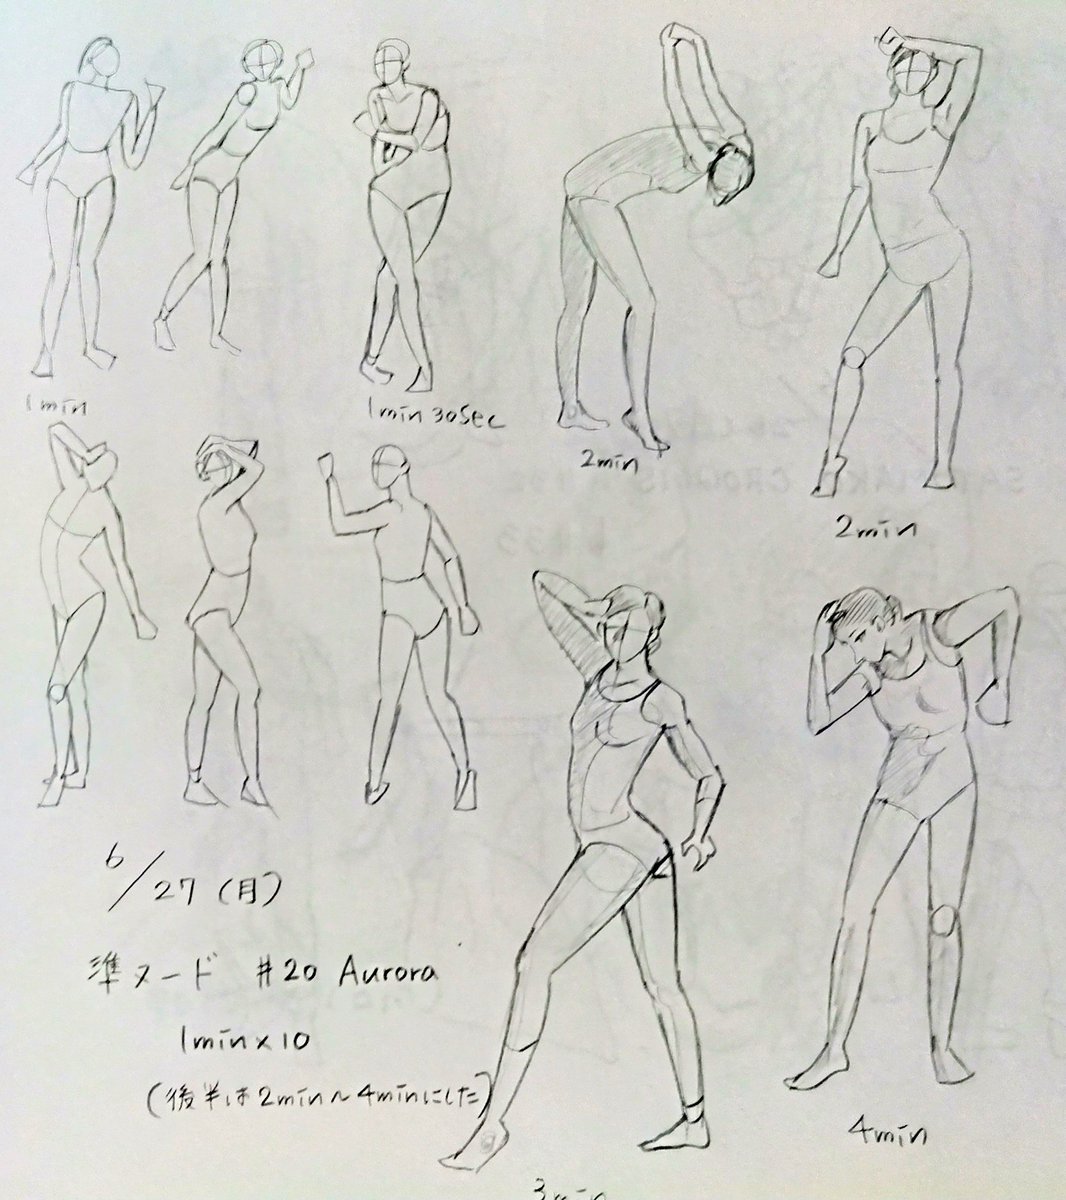 1min
1min30sec
2min
2min
6/27(月)
準ヌード #20 Aurora
1min×10
(後半は2min~4minにした)
3min
4min